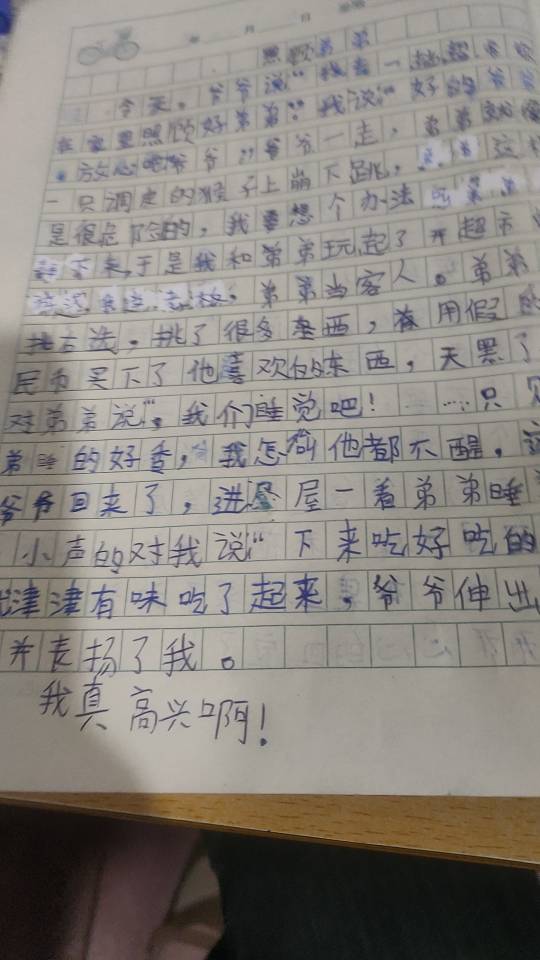 年 月 日
照顾弟弟
今天。爷爷说“我去一趟超市你
在家里照顾好弟弟”我说“好的爷爷
放心吧爷爷”爷爷一走，弟弟就像
一只调皮的猴子上崩下跳，这样
是很危险的，我想个办法
于是我和弟弟玩起了开超市
弟弟当客人。弟弟
挑了很多东西，用假的
民币买下了他喜欢的东西，天黑了
对弟弟说“我们睡觉吧！……只见
弟睡的好香，我怎叫他都不醒，
爷爷回来了，进屋一看弟弟睡
小声的对我说“下来吃好吃的
津津有味吃了起来，爷爷伸出
并表扬了我。
我真高兴啊！